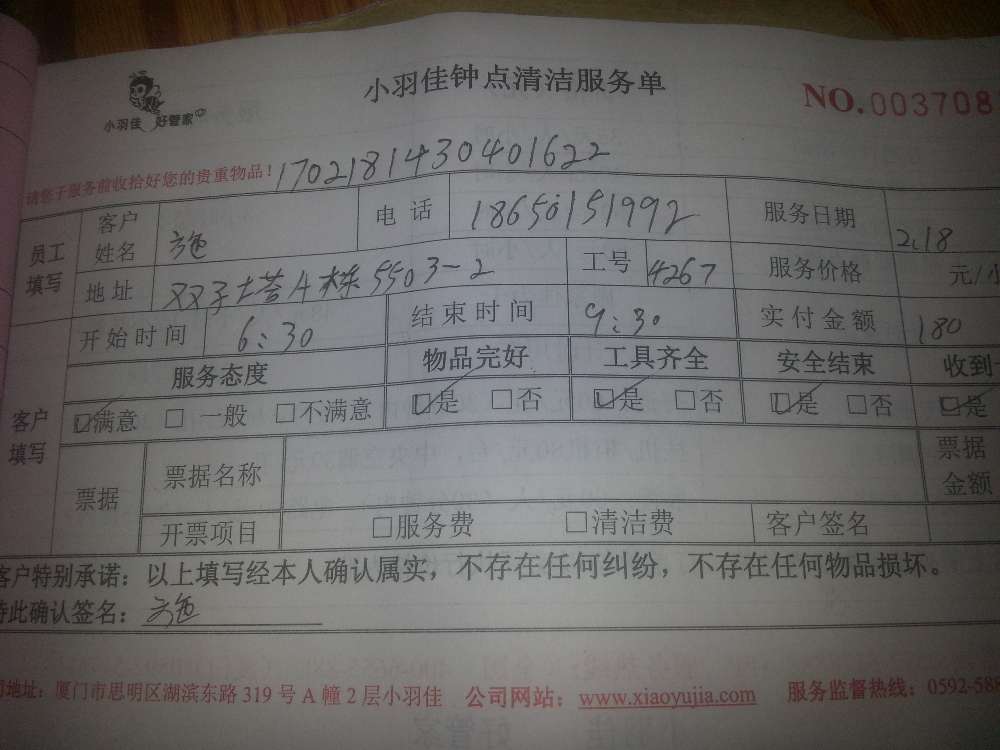 小羽佳钟点清洁服务单
NO.003708
小羽佳 好管家
请您于服务前收拾好您的贵重物品！ 1702181430401622
员工填写 客户姓名 施 电话 18650151992 服务日期 2.18
地址 双子塔A栋5503-2 工号 4267 服务价格 元/小
开始时间 6:30 结束时间 9:30 实付金额 180
客户填写 服务态度 物品完好 工具齐全 安全结束 收到
☑满意 □一般 □不满意 ☑是 □否 ☑是 □否 ☑是 □否 ☑是
票据 票据名称 票据金额
开票项目 □服务费 □清洁费 客户签名
客户特别承诺：以上填写经本人确认属实，不存在任何纠纷，不存在任何物品损坏。
特此确认签名：施
司地址：厦门市思明区湖滨东路319号A幢2层小羽佳 公司网站：www.xiaoyujia.com 服务监督热线：0592-588